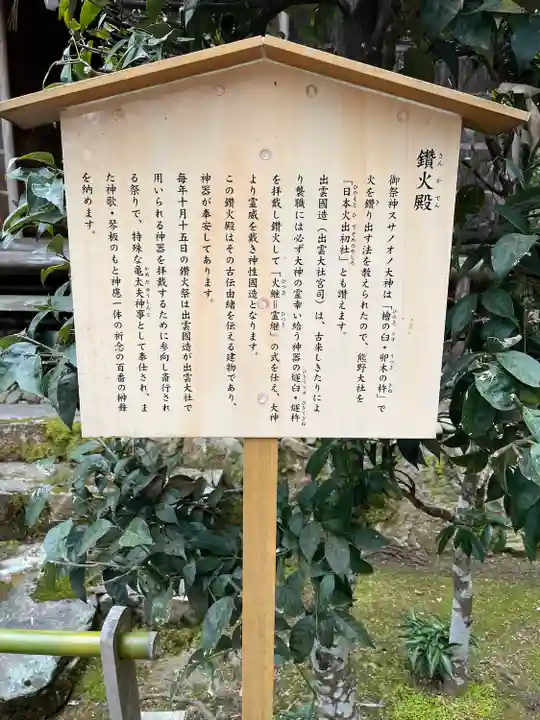 鑽火殿
さんかでん
御祭神スサノオノ大神は「檜の臼・卯木の杵」で
火を鑽り出す法を教えられたので、熊野大社を
「日本火出初社」とも讃えます。
出雲國造(出雲大社宮司)は、古来しきたりによ
り襲職には必ず大神の霊幸い給う神器の燧臼・燧杵
を拝戴し鑽火して「火継＝霊継」の式を仕え、大神
より霊威を戴き神性國造となります。
この鑽火殿はその古伝由緒を伝える建物であり、
神器が奉安してあります。
毎年十月十五日の鑽火祭は出雲國造が出雲大社で
用いられる神器を拝戴するために参向し斎行され
る祭りで、特殊な亀太夫神事として奉仕され、ま
た神歌・琴板のもと神應一体の祈念の百番の榊舞
を納めます。